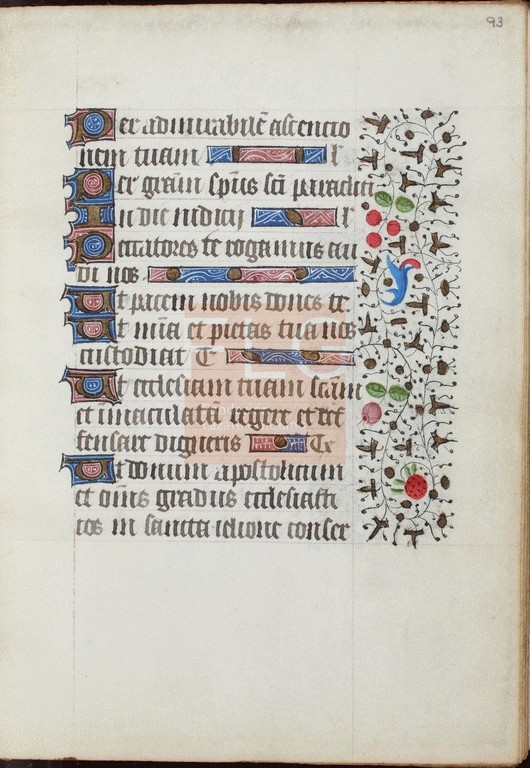 93
Per admirabilē ascencio
nem tuam l̄
Per grām spūs sci paracliti
In die iudicij l̄
Peccatores te rogamus au
di nos
Ut pacem nobis dones te
Ut mīa et pietas tua nos
custodiat T
Ut ecclesiam tuam scām
et īmaculatā regere et def
fensare digneris Te
Ut donum apostolicum
et oīns gradus ecclesiasti
cos in sancta religione conser